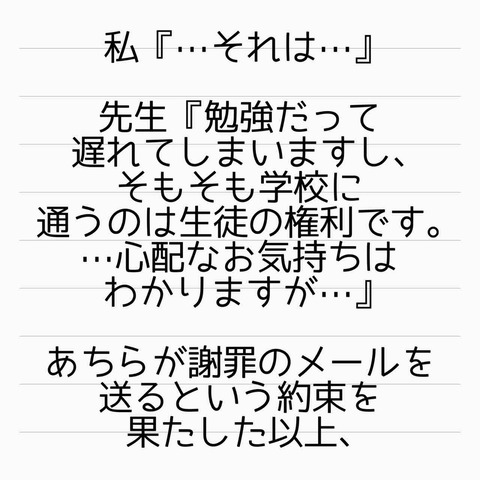 私『…それは…』
先生『勉強だって
遅れてしまいますし、
そもそも学校に
通うのは生徒の権利です。
…心配なお気持ちは
わかりますが…』
あちらが謝罪のメールを
送るという約束を
果たした以上、